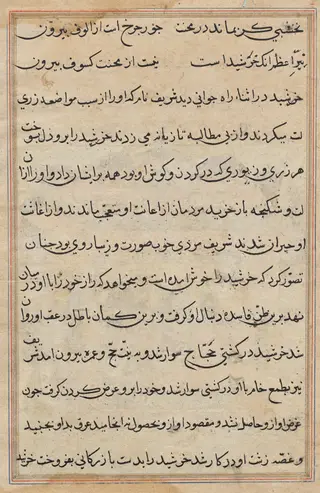 نخشبی کس نماند در محنت جور چرخ است از الوف بیرون
نیر اعظم انکه خرشید است نیست از محنت کسوف بیرون
خورشید در اثناء راه جوانی دید شریف نام که او را از سبب مواضعه زری
لت میکردند و از پی مطالبه تازیانه می زدند خرشید را برو دل بسوخت
هر زری و زیوری که در کردن و کوش او بود همه برایشان داد و او را ازان
لت و شکنجه باز خرید مردمان از اعانت او متعجب ماندند و از اغاثت
او حیران شدند شریف مردی خوب صورت و زیبا روی بود چنان
تصور کرد که خرشید را خوش امده است و میخواهد که راز خود را با او در میان
نهد بر بر ظن فاسده دنبال او کرفت و برین کمان باطل در عقب او روان
شد خرشید در کشتی حجاج سوار شد و به نیت حج و عمره بیرون امد شریف
نیز بطمع خام با او در کشتی سوار شد و خود را برو عرض کردن کرفت چون
غرض او از و حاصل نشد و مقصود او از و بحصول نه انجامید عرق بد او بجنبید
و غصه زشت او در کار شد خرشید را بدست بازرکانی بفروخت خرشید